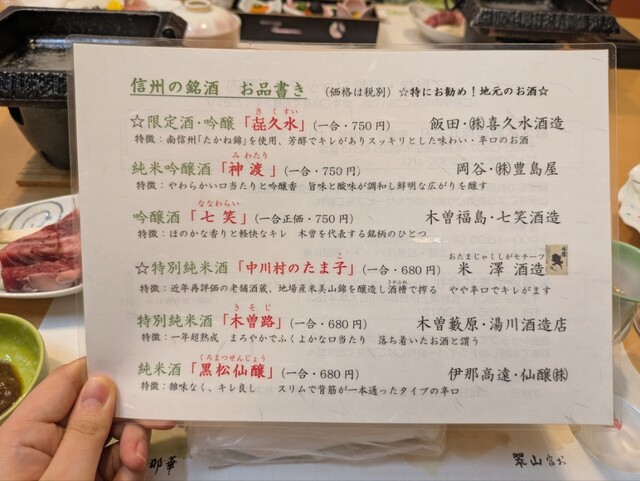 信州の銘酒　お品書き　（価格は税別）　☆特にお勧め！地元のお酒☆
きくすい
☆限定酒・吟醸「㐂久水」（一合・750円）　飯田・㈱喜久水酒造
特徴：南信州「たかね錦」を使用、芳醇でキレがありスッキリとした味わい・辛口のお酒
みわたり
純米吟醸酒「神渡」（一合・750円）　岡谷・㈱豊島屋
特徴：やわらかい口当たりと吟醸香　旨味と酸味が調和し鮮明な広がりを醸す
ななわらい
吟醸酒「七笑」（一合正価・750円）　木曽福島・七笑酒造
特徴：ほのかな香りと軽快なキレ　木曽を代表する銘柄のひとつ
こ
おたまじゃくしがモチーフ
☆特別純米酒「中川村のたま子」（一合・680円）　米澤酒造
さかふね
特徴：近年再評価の老舗酒蔵、地場産米美山錦を醸造し酒槽で搾る　やや辛口でキレがます
きそじ
特別純米酒「木曽路」（一合・680円）　木曽藪原・湯川酒造店
特徴：一年超熟成　まろやかでふくよかな口当たり　落ち着いたお酒と謂う
くろまつせんじょう
純米酒「黒松仙醸」（一合・680円）　伊那高遠・仙醸㈱
特徴：雑味なく、キレ良し　スリムで背筋が一本通ったタイプの辛口
那華
翠山